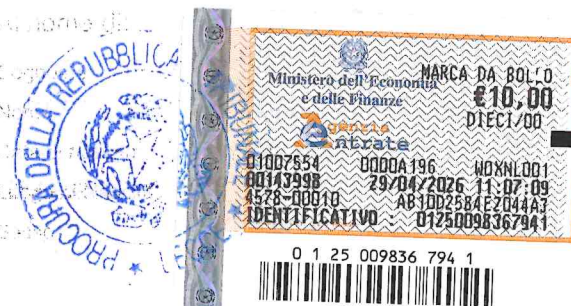 PROCURA DELLA REPUBBLICA
TRIBUN
Ministero dell'Economia
e delle Finanze
MARCA DA BOLLO
€10,00
DIECI/00
Agenzia
Entrate
01007554 0000A196 W0XNL001
00143998 29/04/2026 11:07:09
4578-00010 AB10D2584E2044A3
IDENTIFICATIVO : 01250098367941
0 1 25 009836 794 1